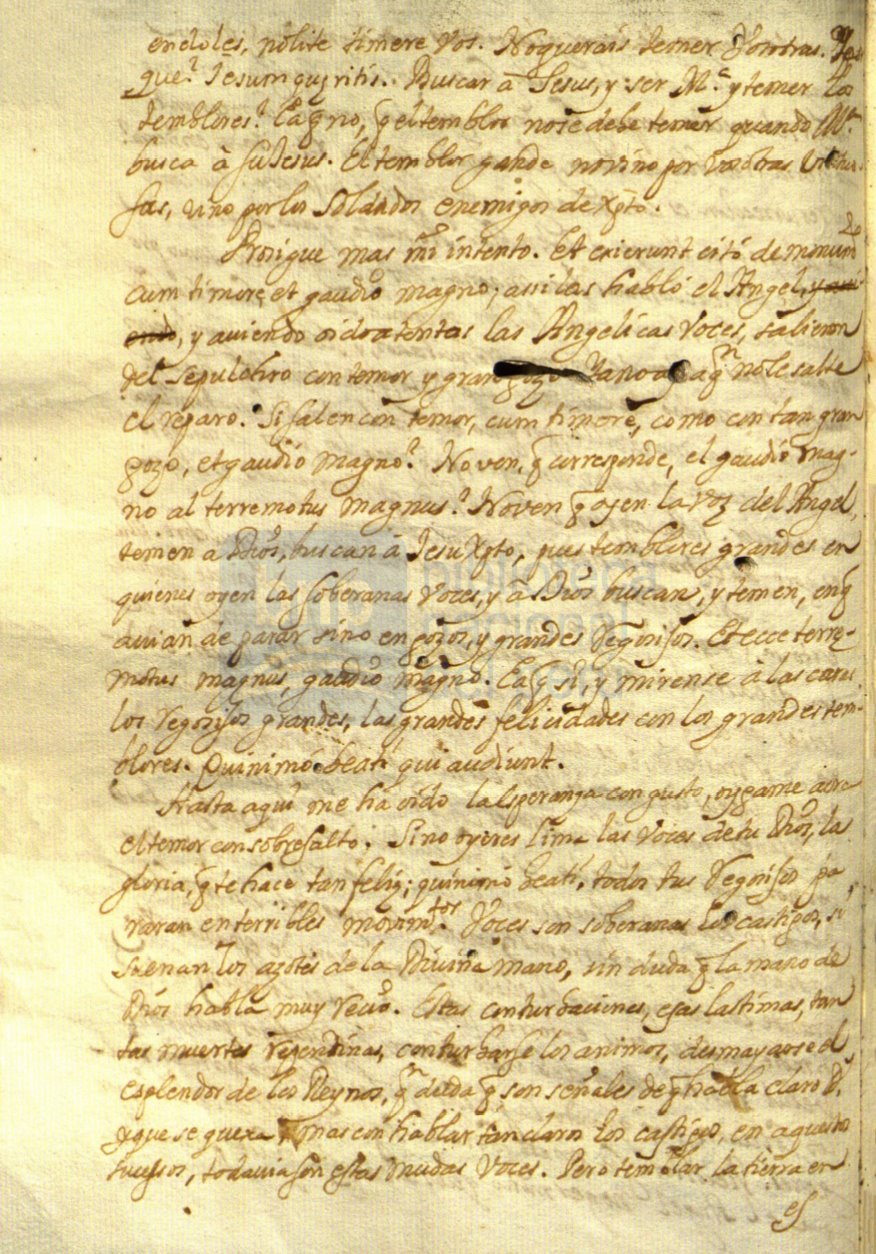 endoles, nolite timere vos. No querais temer vosotras.
que? Jesum quęritis. Buscar â Jesus, y ser Mª. y temer los
temblores? Ea q̃ no, q̃ el temblor no se debe temer quando Mª.
busca â su Jesus. El temblor gande no vino por vosotras
sas, vino por los Soldados enemigos de Xpto.
Prosigue mas mi intento. Et exierunt citó de monum
cum timore, et gaudio magno; assi las habló el Angel,
, y auiendo oido atentas las Angelicas voces, salieron
del sepulchro con temor y gran gozo Ya no nole salte
el reparo. Si salen con temor, cum timore, como con tan gran
gozo, et gaudio magno? No ven, q̃ corresponde, el gaudio mag-
no al terremotus magnus? No ven q̃ oyen la voz del Angel,
temen a Dios, buscan â Jesu Xpto, pues temblores grandes en
quienes oyen las soberanas voces, y â Dios buscan, y temen, en q̃
auian de parar sino en gozos, y grandes Regosijos. Et ecce terrę-
motus magnus, gaudio magno. Ea q̃ si, y mirense â las caras
los regozijos grandes, las grandes felicidades con los grandes tem-
blores. Quinimó beati qui audiunt.
Hasta aqui me ha oido la esperanza con gusto, oygame aora
el temor con sobresalto. Si no oyeres Lima las voces de tu Dios, la
gloria, q̃ te hace tan feliz; quinimó beati, todos tus Regosijos pa
raran en terribles movim.tos Voces son soberanas los castigos, si
suenan los azotes de la Divina mano, sin duda q̃ la mano de
Dios habla muy recio. Estas conturbaciones, esas lastimas, tan
tas muertes rependinas, conturbarse los animos, desmayarse el
esplendor de los Reynos, qn duda q̃ son señales de q̃ habla claro D.
y que se quexa mas con hablar tan claros los castigos, en aquestos
sucessos, todavia son estas mudas voces. Pero temblar la tierra en
es